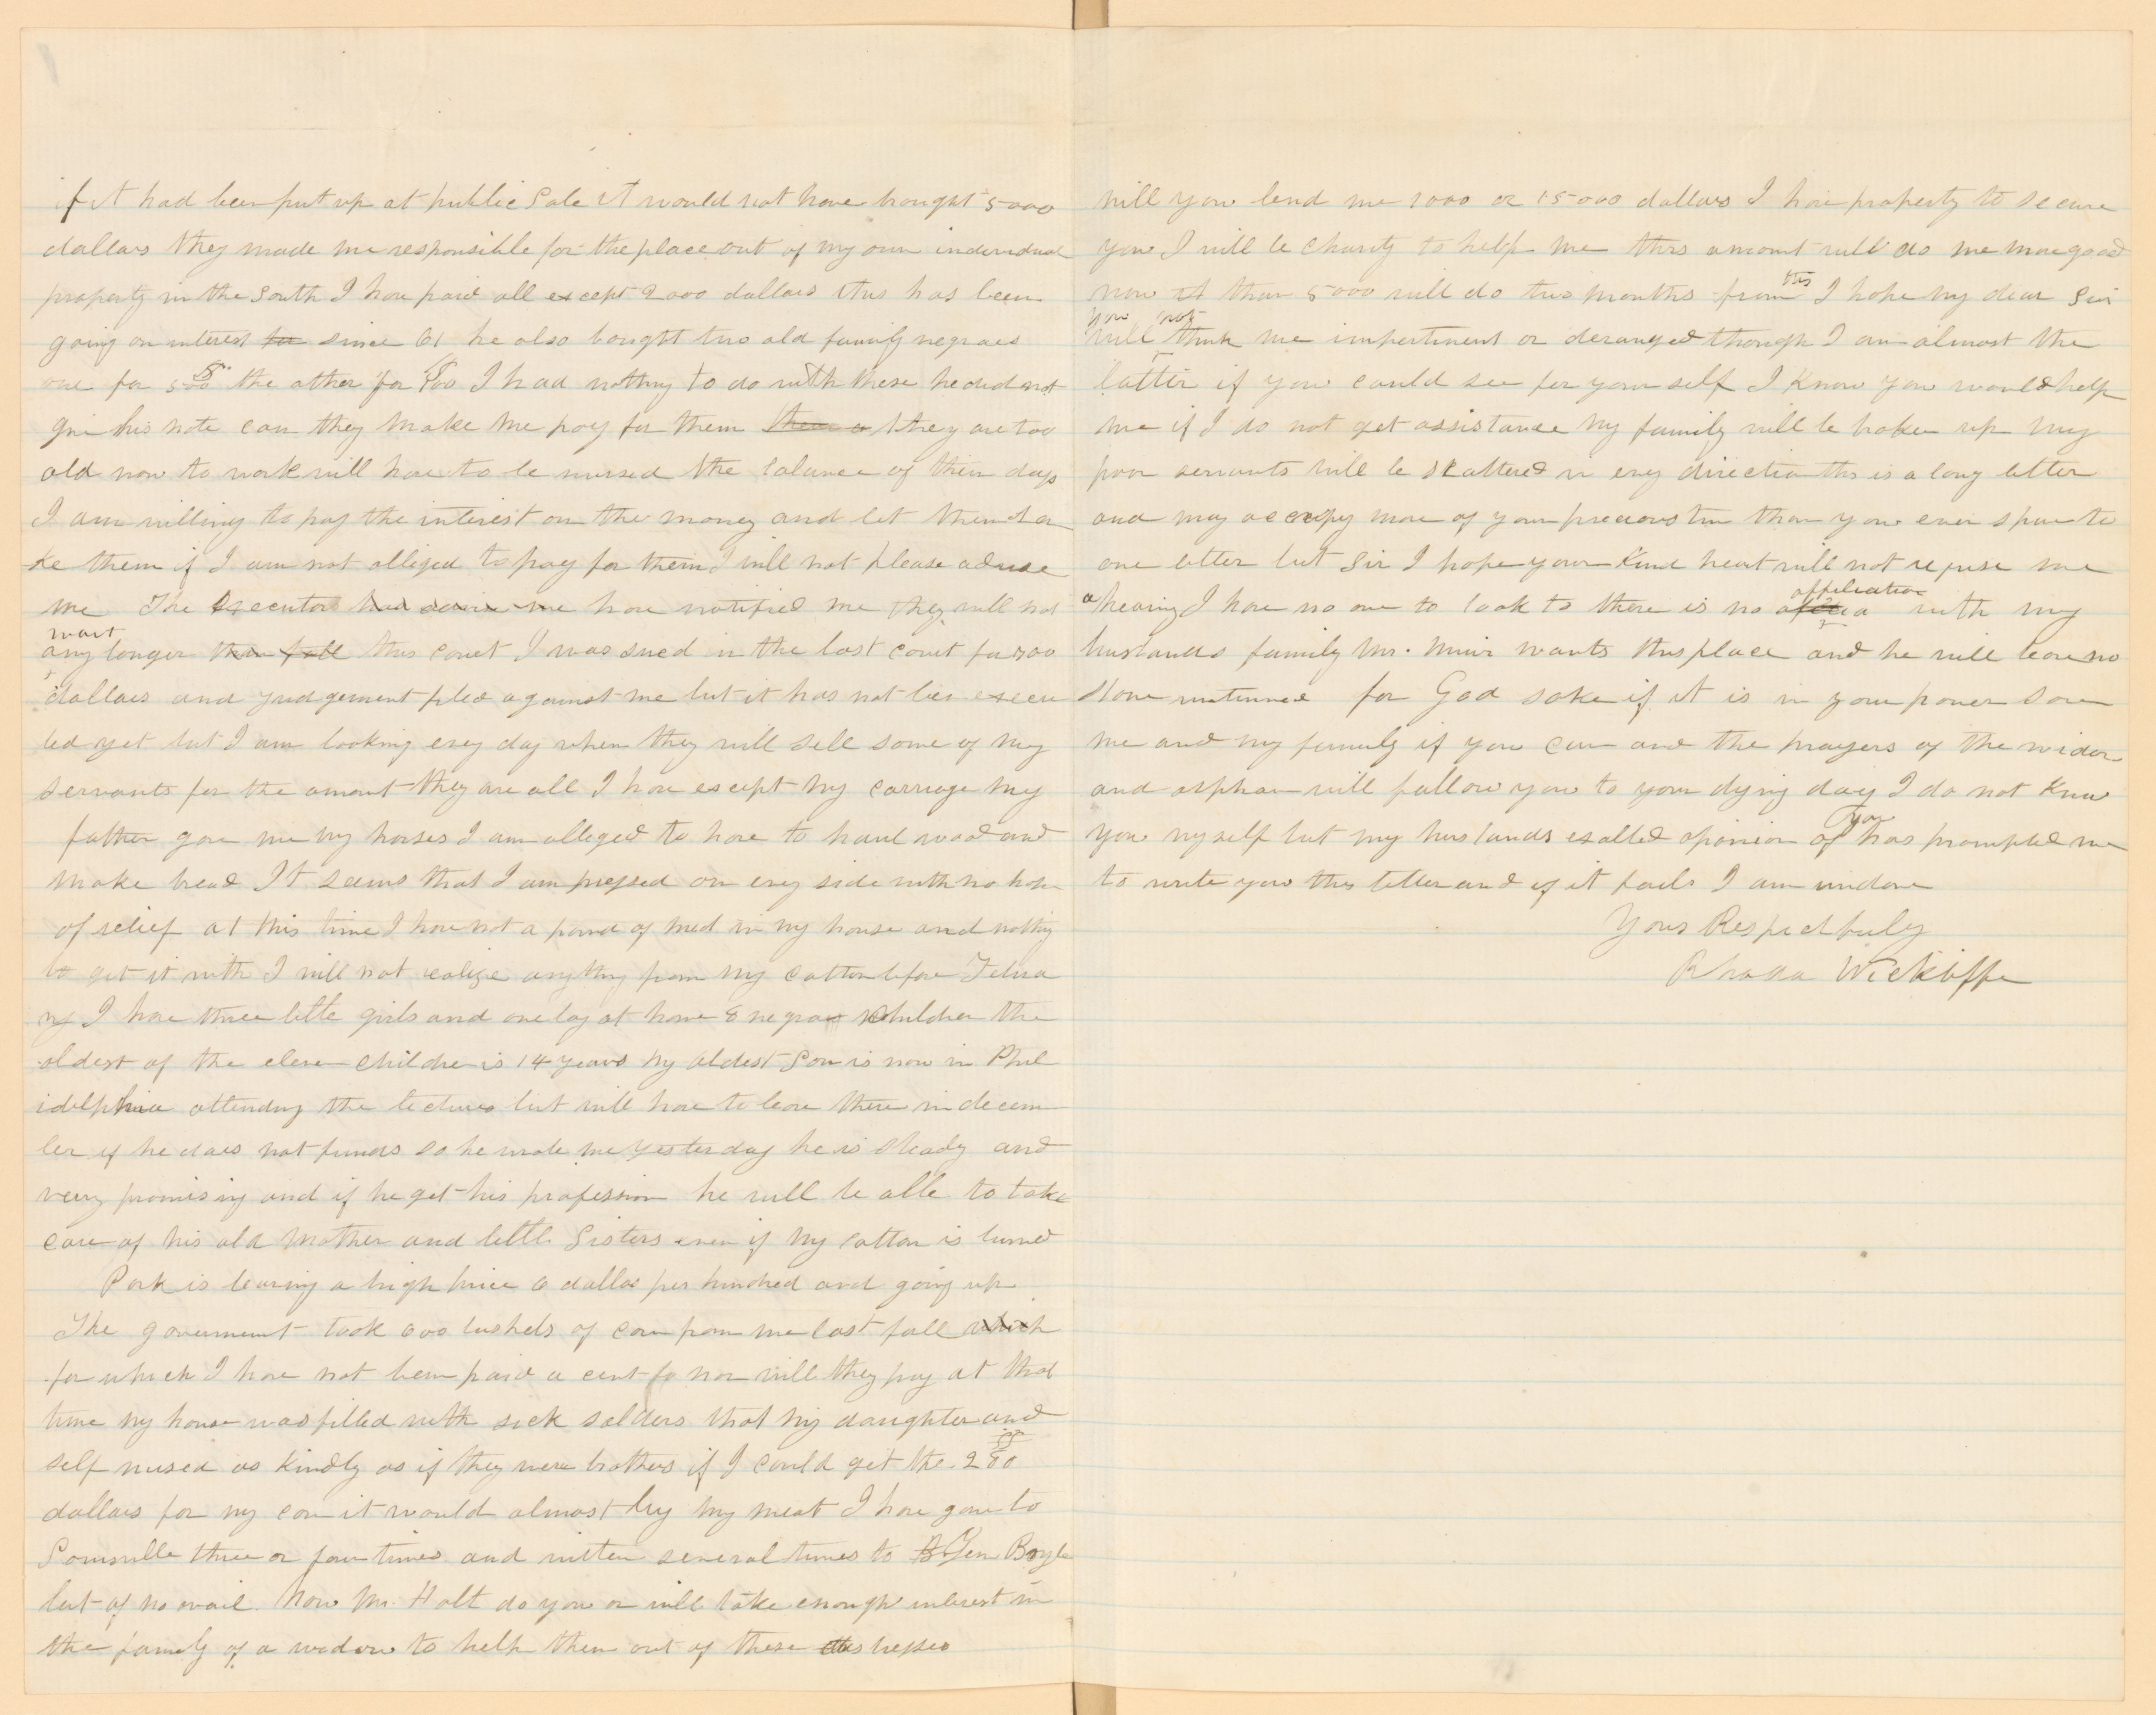 if it had been put up at public Sale it would not have brought 5000
dollars they made me responsible for the place out of my own individual
property in the South I have paid all except 2000 dollars this has been
going on interest since 61 he also bought two old family negroes
one for 500 the other for 800 I had nothing to do with these he did not
give his note can they make me pay for them they are too
old now to work will have to be nursed the balance of their days
I am willing to pay the interest on the money and let them ta
ke them if I am not obliged to pay for them I will not please advise
me The Executors have notified me they will not
wait
any longer this court I was sued in the last court for 300
dollars and judgement pled against me but it has not been execu
ted yet but I am looking evey day when they will sell some of my
servants for the amount they are all I have except my carriage my
father gave me my horses I am obleged to have to haul wood and
make bread It seems that I am pressed on evey side with no hope
of relief at this time I have not a pound of meat in my house and nothing
to get it with I will not realize anything from my cotton before Febua
ry I have three little girls and one boy at home 8 negro children the
oldest of the eleven children is 14 years my oldest Son is now in Phil
idelphia attending the lectures but will have to leave there in decem
ber if he does not funds so he wrote me yesterday he is steady and
very promising and if he get his profession he will be able to take
care of his old Mother and little Sisters even if my cotton is burned
Pork is bearing a high price 6 dollars per hundred and going up
The government took 600 bushels of corn from me last fall which
for which I have not been paid a cent nor will they pay at that
time my house was filled with sick solders that my daughter and
self nursed as kindly as if they were brothers if I could get the 280
dollars for my corn it would almost buy my meat I have gone to
Louisville three or four times and written several times to Gen Boyle
but of no avail. Now Mr. Holt do you or will take enough interest in
the family of a widow to help them out of these distresses
will you lend me 1000 or 15000 dollars I have property to secure
you I will be charity to help me this amount will do me more good
now than 5000 will do two months from this I hope my dear Sir
you will not think me impertinent or deranged though I am almost the
latter if you could see for your self I know you would help
me if I do not get assistance my family will be broken up my
poor servants will be skattered in evry direction this is a long letter
and may occupy more of your precious time than you ever spare to
one letter but Sir I hope your kind heart will not refuse me
a hearing I have no one to look to there is no affiliation with my
husbands family Mr. Muir wants this place and he will leave no
stone unturned for God sake if it is in your power save
me and my family if you can and the prayers of the widow
and orphan will follow you to your dying day I do not know
you myself but my husbands exalted opinion of you has prompted me
to write you this letter and if it fails I am undone
Yours Respectfuly
Rhoda Wickliffe